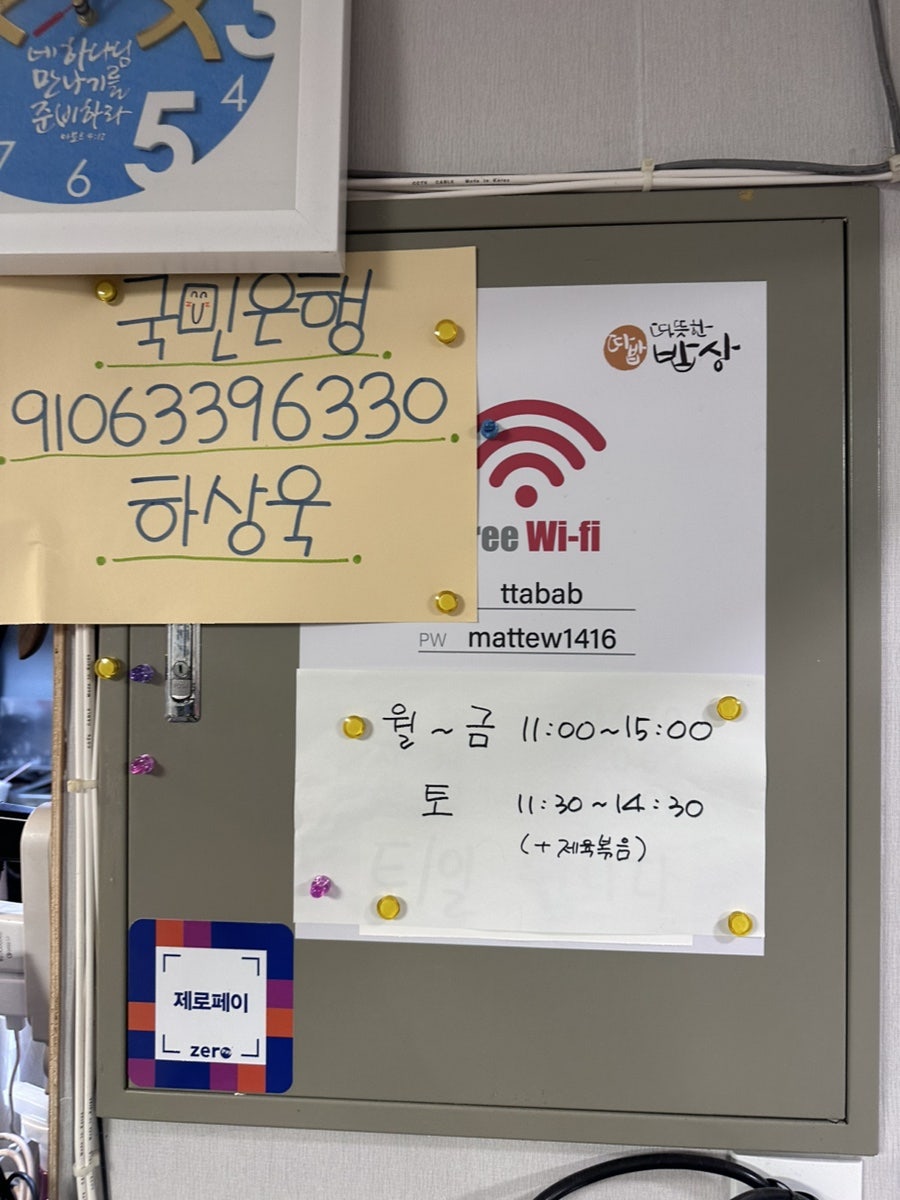 3
4
5
6
7
네 하나님
만나기를
준비하라
아모스 4:12
CCTV CABLE Made in Korea
국민은행
91063396330
하상욱
따밥
따뜻한
밥상
ree Wi-fi
ttabab
PW mattew1416
월 ~ 금 11:00~15:00
토 11:30 ~ 14:30
(+ 제육볶음)
제로페이
zero